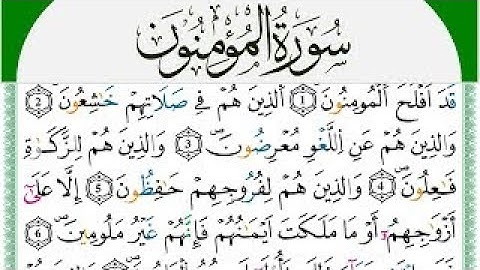 سُورَةُ الْمُؤْمِنُونَ
قَدْ أَفْلَحَ الْمُومِنُونَ ١ اَلذِينَ هُمْ فِي صَلَاتِهِمْ خَٰشِعُونَ ٢
وَالذِينَ هُمْ عَنِ اِللَّغْوِ مُعْرِضُونَ ٣ وَالذِينَ هُمْ لِلزَّكَوٰةِ
فَٰعِلُونَ ٤ وَالذِينَ هُمْ لِفُرُوجِهِمْ حَٰفِظُونَ ٥ إِلَّا عَلَىٰٓ
أَزْوَٰجِهِمُۥٓ أَوْ مَا مَلَكَتَ اَيْمَٰنُهُمْ فَإِنَّهُمْ غَيْرُ مَلُومِينَ ٦